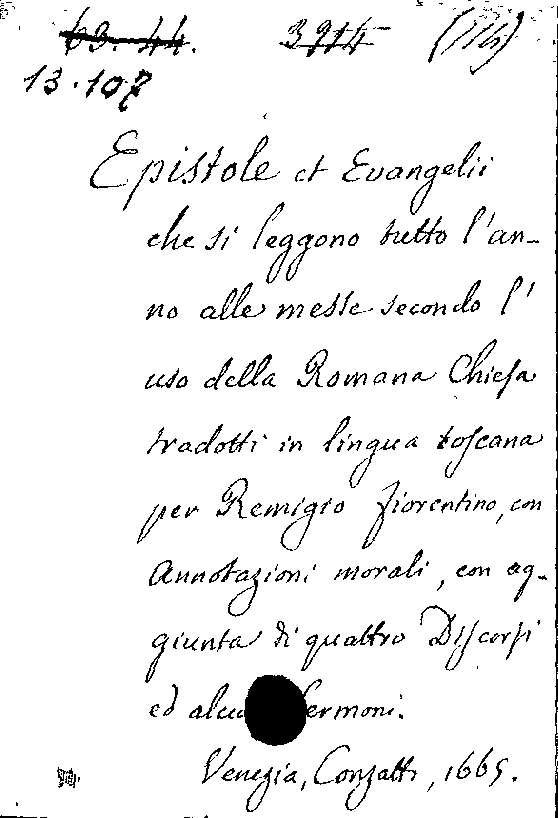 63.44. 3914 (114)
13.107
Epistole et Evangelii
che si leggono tutto l'an-
no alle messe secondo l'
uso della Romana Chiesa
tradotti in lingua toscana
per Remigio fiorentino, con
Annotazioni morali, con ag-
giunta di quattro Discorsi
ed
Venezia, Conzatti, 1665.